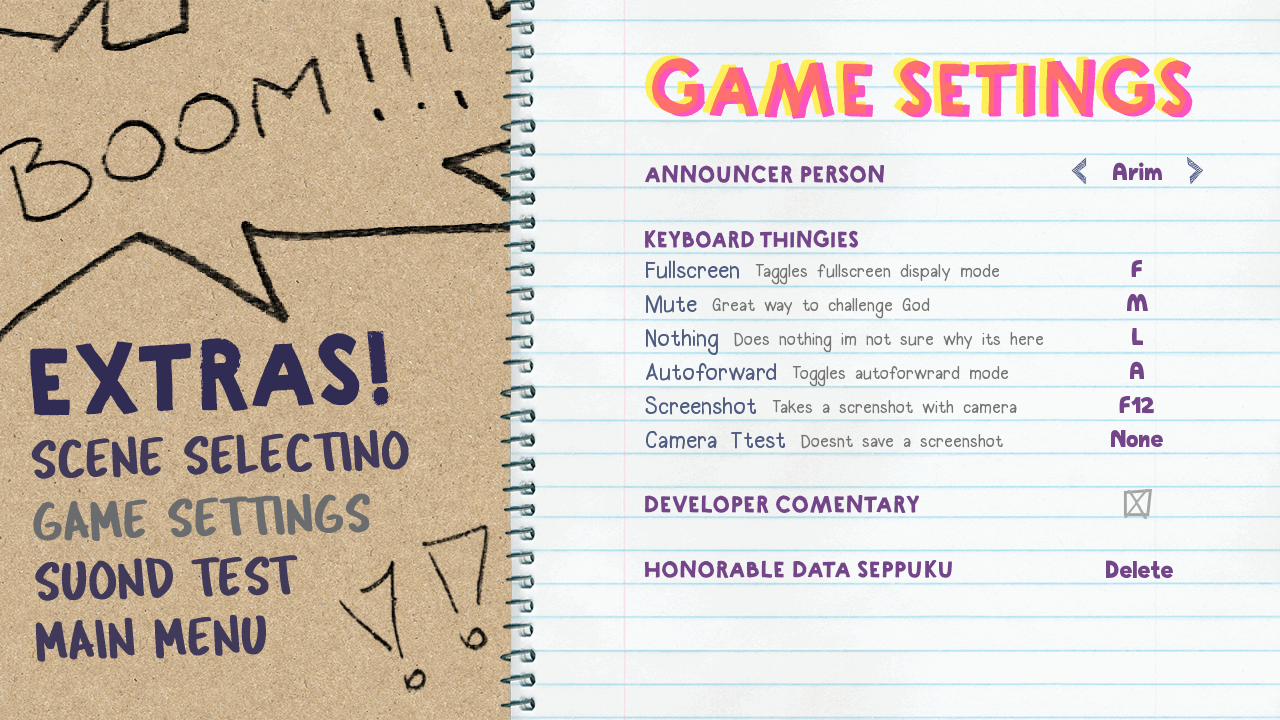 BOOM!!!
EXTRAS!
SCENE SELECTINO
GAME SETTINGS
SUOND TEST
MAIN MENU
!!
GAME SETINGS
ANNOUNCER PERSON Arim
KEYBOARD THINGIES
Fullscreen Taggles fullscreen dispaly mode F
Mute Great way to challenge God M
Nothing Does nothing im not sure why its here L
Autoforward Toggles autoforwrard mode A
Screenshot Takes a screnshot with camera F12
Camera Ttest Doesnt save a screenshot None
DEVELOPER COMENTARY
HONORABLE DATA SEPPUKU Delete